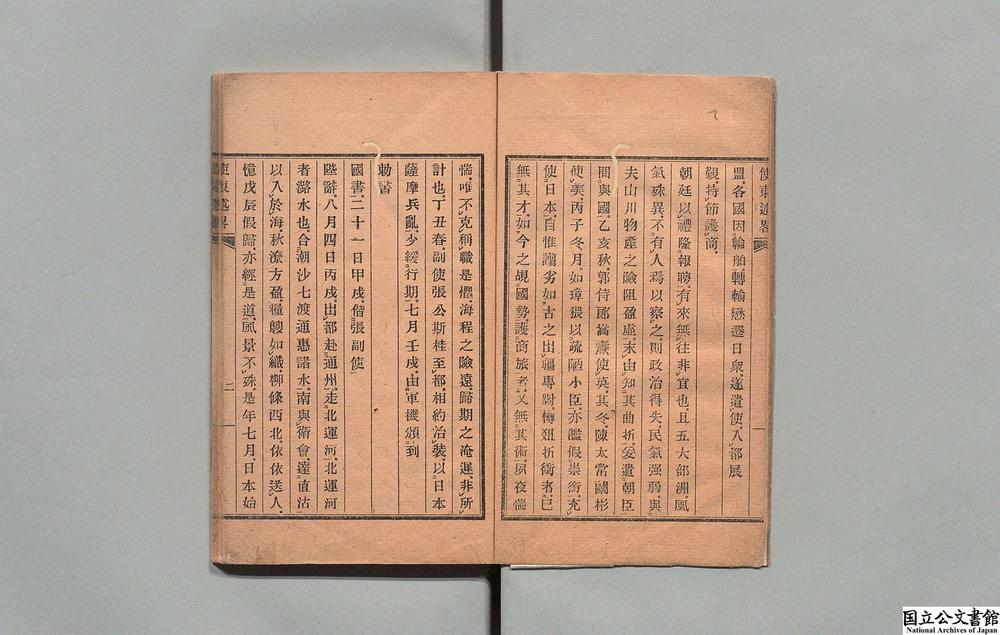 使東述畧
盟各國因輪舶轉輸懋遷日衆遂遣使入都展
覲持節護商
朝廷以禮隆報聘有來無往非宜也且五大部洲風
氣殊異不有人焉以察之則政治得失民氣强弱與
夫山川物產之險阻盈虛末由知其曲折爰遣朝臣
間與國乙亥秋郭侍郎嵩燾使英其冬陳太常蘭彬
使美丙子冬月如璋猥以疏陋小臣亦濫假崇銜充
使日本自惟譾劣如古之出疆專對樽俎折衝者已
無其才如今之覘國勢護商旅者又無其術夙夜惴
惴唯不克稱職是懼海程之險遠歸期之淹遲非所
計也丁丑春副使張公斯桂至都相約治裝以日本
薩摩兵亂少緩行期七月壬戌由軍機頒到
勅書
國書二十一日甲戌偕張副使
陛辭八月四日丙戌出都赴通州走北運河北運河
者潞水也合潮沙七渡通惠諸水南與衛會達直沽
以入於海秋潦方盈糧艘如織柳條西北依依送人
憶戊辰假歸亦經是道風景不殊是年七月日本始
使東述畧
二
国立公文書館
National Archives of Japan